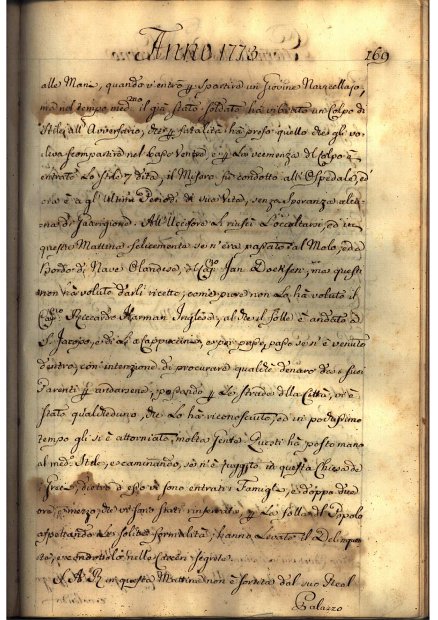 Anno 1773
169
alle Mani, quando v'entrò p spartire un Giovine Navicellajo,
mà nel tempo med.mo il già stato soldato hà vibrato un Colpo di
Stile all'Aversario, che p fatalità hà preso quello che gli vo-
leva scompartire nel basso Ventre e p la veemenza del Colpo è
entrato lo stile 7 dita, il Misero fù condotto all'Ospedale, ed
ora è a gl'Ultimi Periodi di sua Vita, senza speranza alcu-
na di Guarigione. All'Uccisore li riuscì l'occultarsi, ed in
questa Mattina felicemente se n'era passato al Molo, ed a
Bordo di Nave Olandese, del Cap.no Jan Doeksen, mà questi
non hà voluto darli ricetto, come pure non l'hà voluto il
Cap.no Riccardo Harman Inglese, al che il folle è andato a
S. Jacopo, e di là a Cappuccini, e passo passo se n'è venuto
dentro, con intenzione di procurare qualche denaro da suoi
Parenti p andarsene, passando p le strade della Città, vi è
stato qualcheduno, che lo hà riconosciuto, ed in pochissimo
tempo gli si è attorniata molta Gente. Questi hà posto mano
al med.o Stile, e caminando, se n'è fuggito in questa Chiesa de
Greci, dietro ad esso vi sono entrati i Famigli, e doppo due
ore e mezzo che vi sono stati rinserrati, p la folla del Popolo
aspettando le solite formalità, hanno levato il Delinque-
te, e condottolo nelle Carceri segrete.
S. A. R. in questa Mattina non è sortita dal suo Real
Palazzo